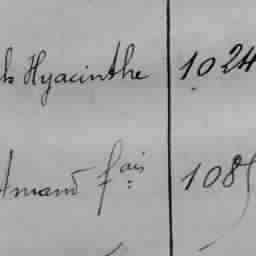 Hyacinthe 1024
Amand fçais 108